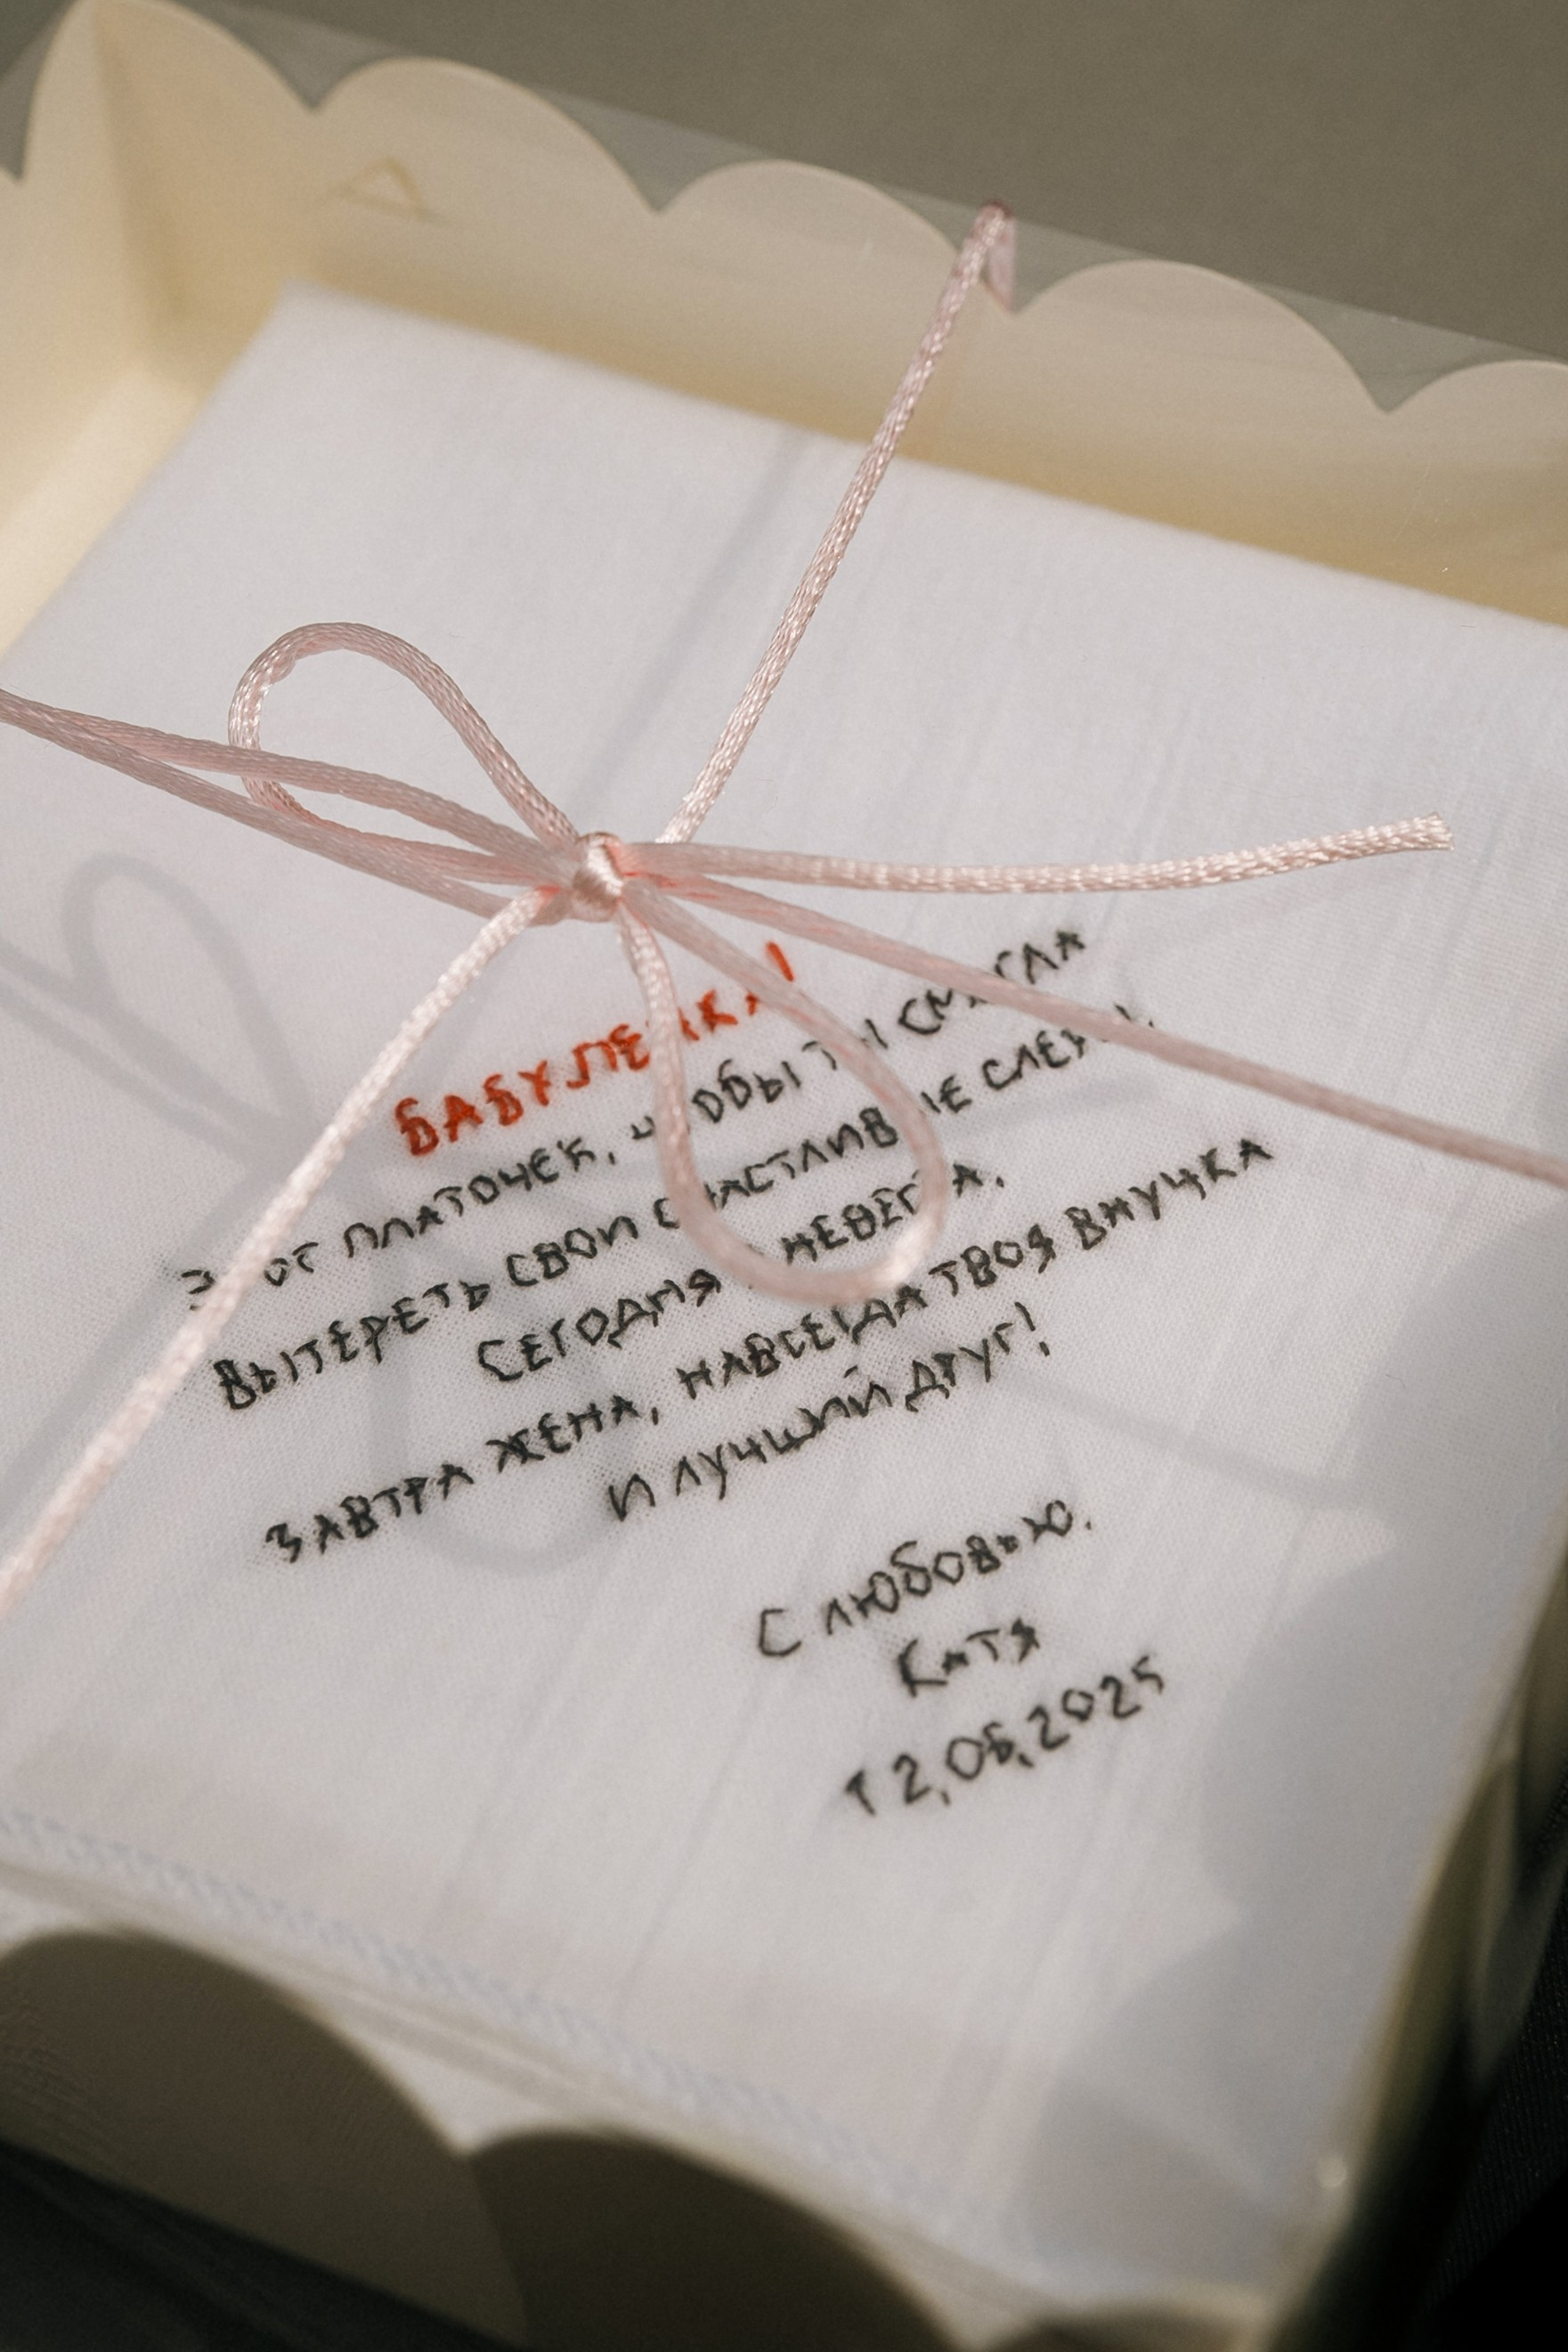 БАБУЛЕЧКА!
ЭТОТ ПЛАТОЧЕК, ЧТОБЫ ТЫ СМОГЛА
ВЫТЕРЕТЬ СВОИ СЧАСТЛИВЫЕ СЛЕЗЫ.
СЕГОДНЯ Я НЕВЕСТА,
ЗАВТРА ЖЕНА, НАВСЕГДА ТВОЯ ВНУЧКА
И ЛУЧШИЙ ДРУГ!
С ЛЮБОВЬЮ.
КАТЯ
12,06,2025